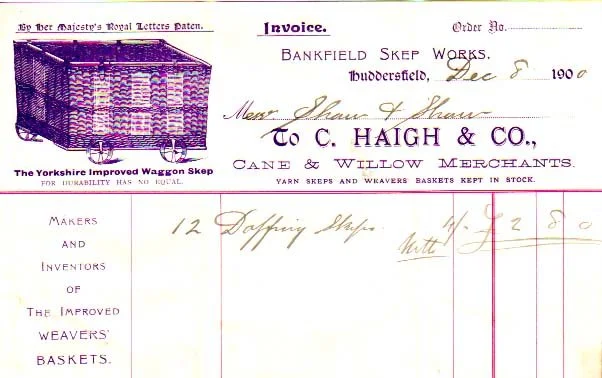 By Her Majesty's Royal Letters Paten.
Invoice.
Order No.
Bankfield Skep Works.
Huddersfield, Dec 8 1900
Messrs Shaw & Shaw
To C. HAIGH & CO.,
Cane & Willow Merchants.
YARN SKEPS AND WEAVERS BASKETS KEPT IN STOCK.
The Yorkshire Improved Waggon Skep
FOR DURABILITY HAS NO EQUAL.
Makers
and
Inventors
of
The Improved
WEAVERS'
BASKETS.
12 Doffing Skeps 4/- £ 2 8 0
Nett